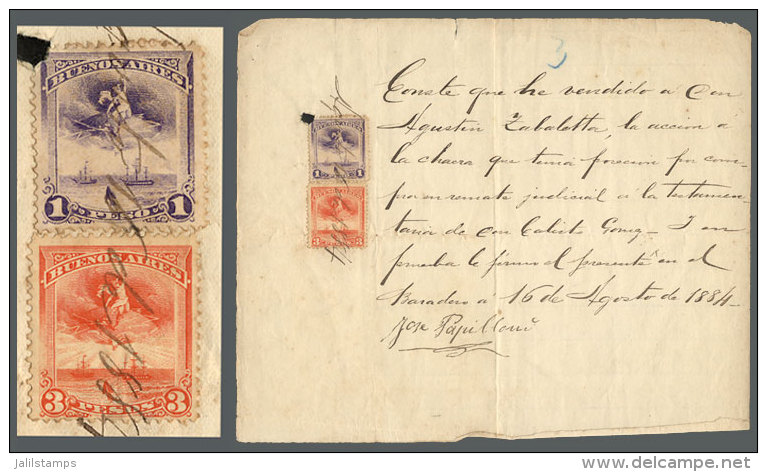 BUENOS AIRES
1 PESO 1
BUENOS AIRES
3 PESOS 3
3
Conste que he vendido á Don
Agustin Zabaletta, la accion á
la chacra que tenia posecion por com-
pra en remate judicial á la testamen-
taria de Don Calisto Gomez - I en
prueba le firmo el presente en el
Baradero a 16 de Agosto de 1884-
Jose Papillon
BUENOS AIRES
1 PESO 1
BUENOS AIRES
3 PESOS 3
jalilstamps
www.delcampe.net